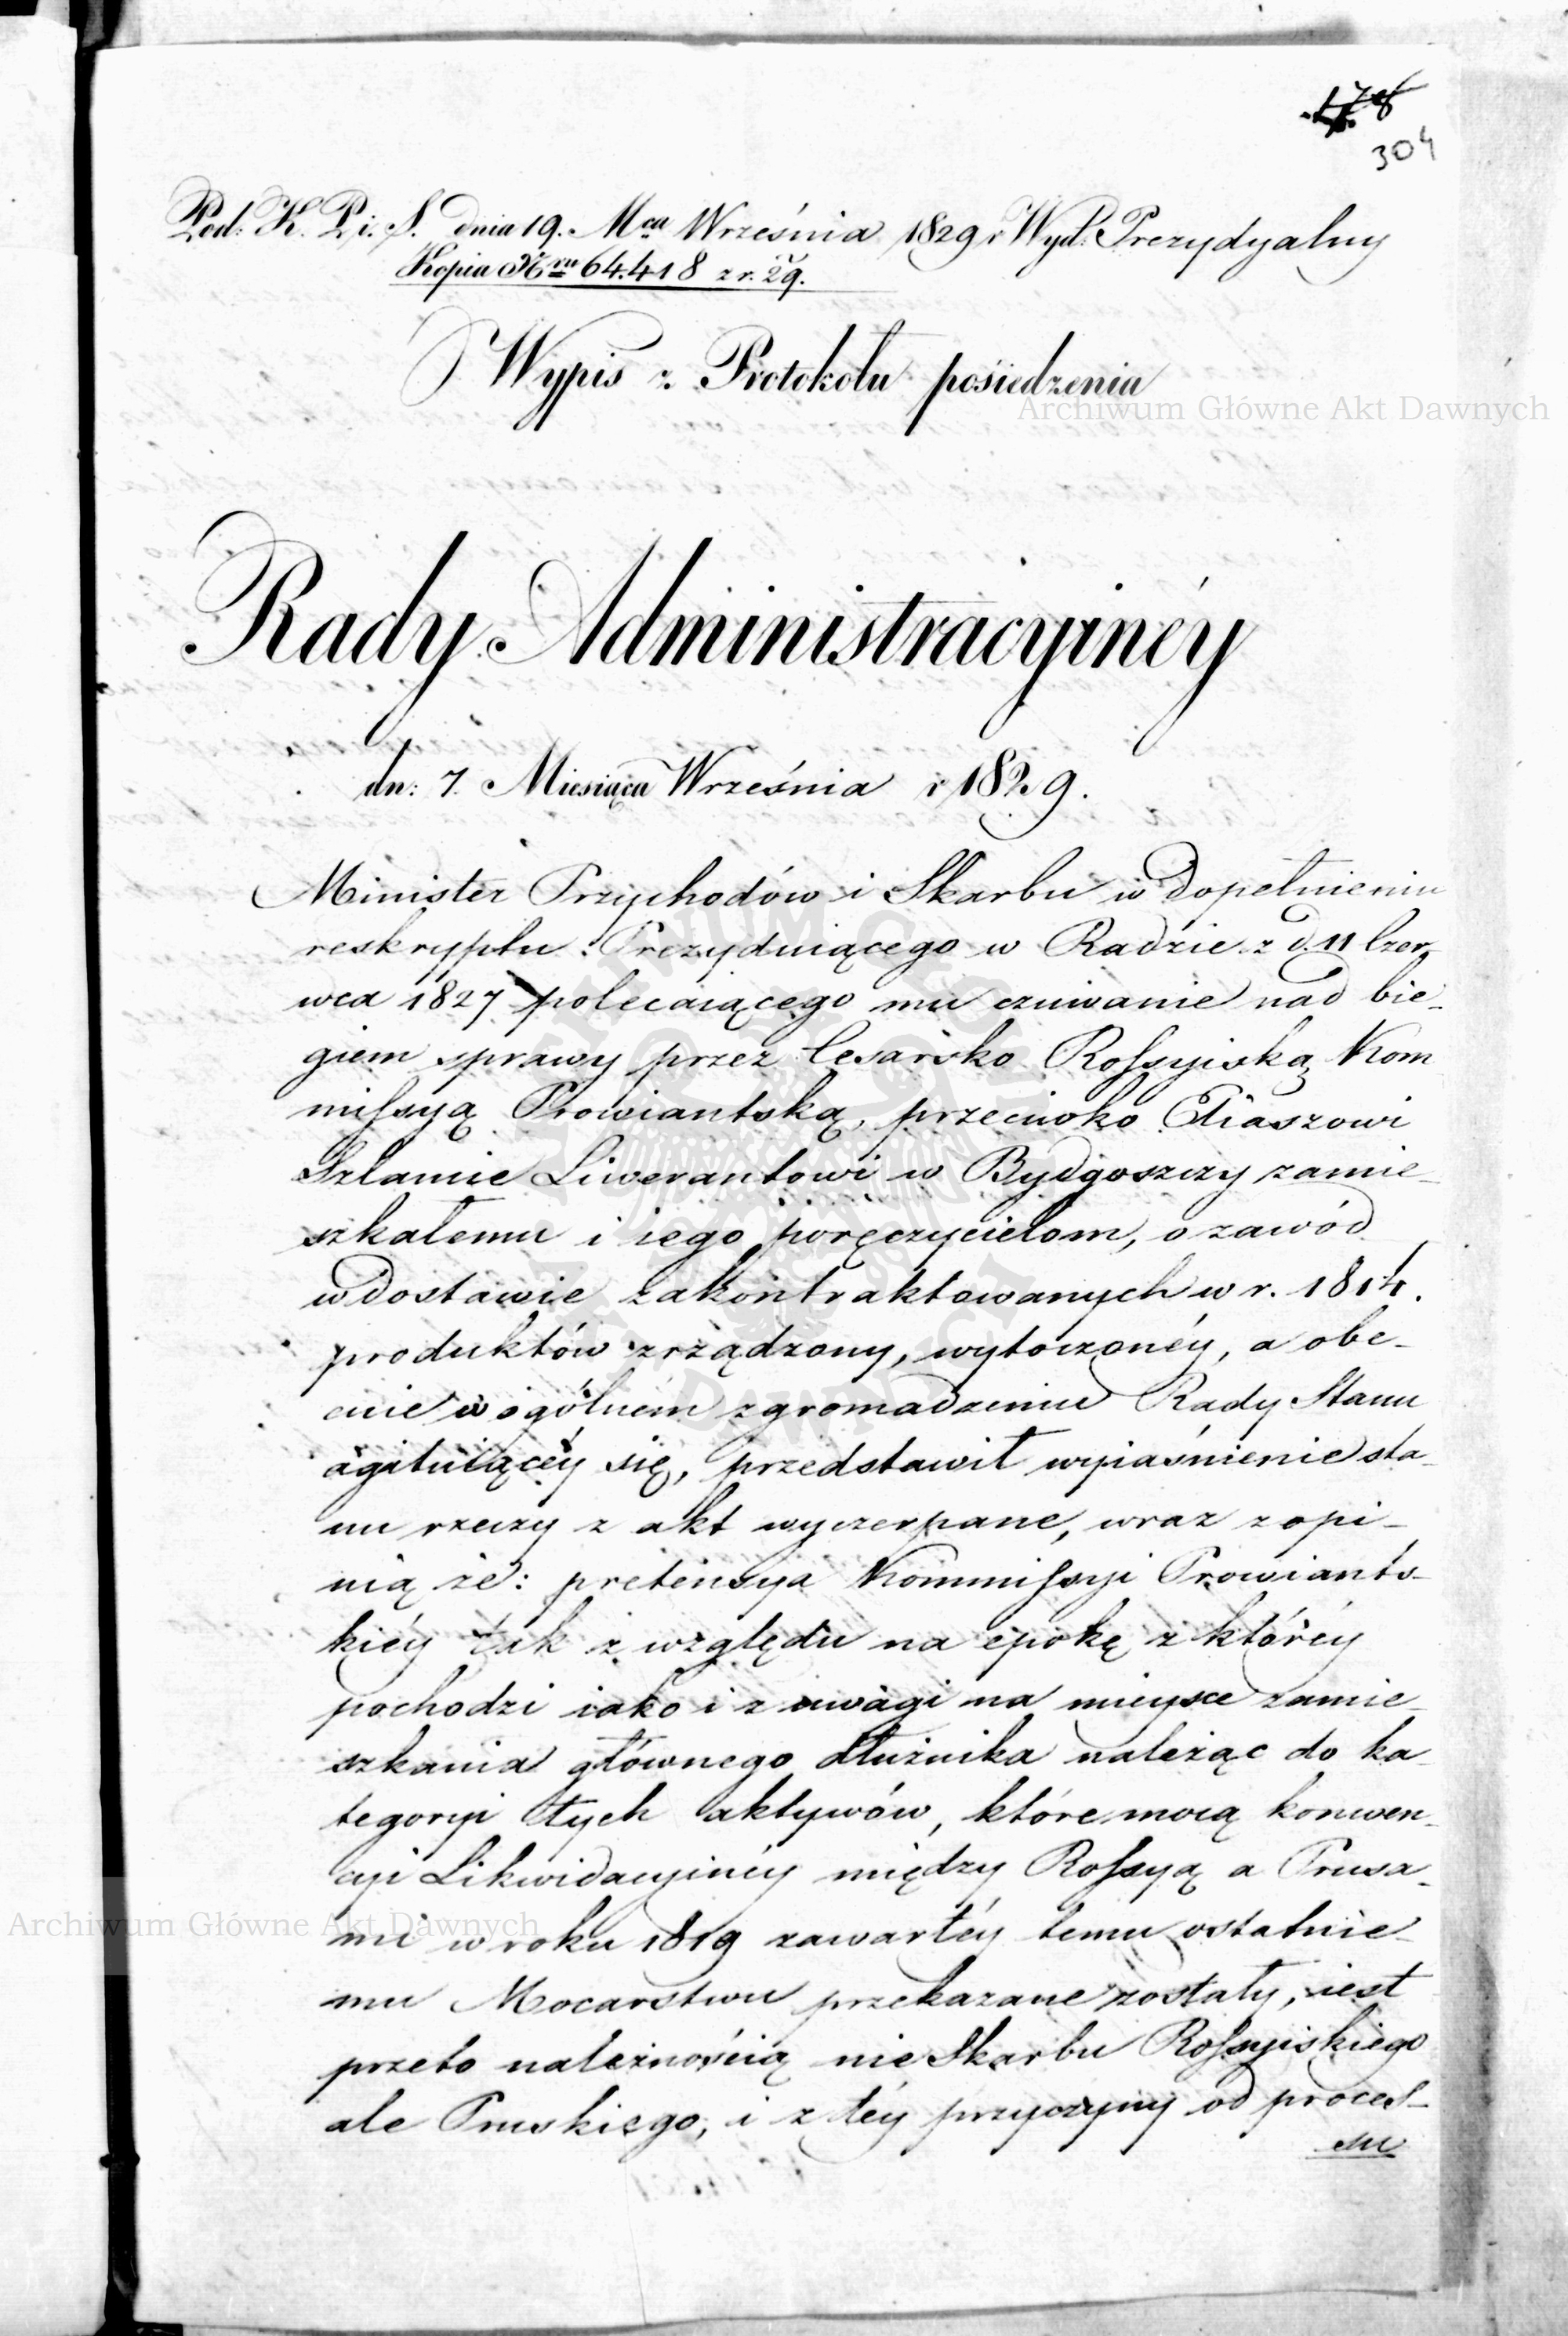 178
304
Pod: K. P. i. S. dnia 19. Mca Września 1829 r Wyd: Prezydyalny
Kopia Nru 64.418 z r. 29.
Wypis z Protokołu posiedzenia
Archiwum Główne Akt Dawnych
Rady Administracyinéy
dn: 7. Miesiąca Września r 1829.
Minister Przychodów i Skarbu w dopełnieniu
reskryptu Prezyduiącego w Radzie z d. 11 Czer-
wca 1827 polecaiącego mu czuwanie nad bie-
giem sprawy przez Cesarsko Rossyiską Kom
missyą Prowiantską, przeciwko Eliaszowi
Szlamie Liwerantowi w Bydgoszczy zamie-
szkałemu i iego poręczycielom, o zawód
w dostawie zakontraktowanych w r. 1814.
produktów zrządzony, wytoczonéy, a obe-
cnie w ogólném zgromadzeniu Rady Stanu
agituiącéy się, przedstawił wyiaśnienie sta-
nu rzeczy z akt wyczerpane, wraz z opi-
nią że: pretensya Kommissyi Prowiants-
kiéy tak z względu na epokę z któréy
pochodzi iako i z uwagi na mieysce zamie-
szkania głównego dłużnika należąc do ka-
tegoryi tych aktywów, które mocą konwen-
cyi Likwidacyinéy między Rossyą a Prusa-
mi w roku 1819 zawartéy temu ostatnie-
Archiwum Główne Akt Dawnych
mu Mocarstwu przekazane zostały, iest
przeto należnością nie Skarbu Rossyiskiego
ale Pruskiego, i z téy przyczyny od proces-
su